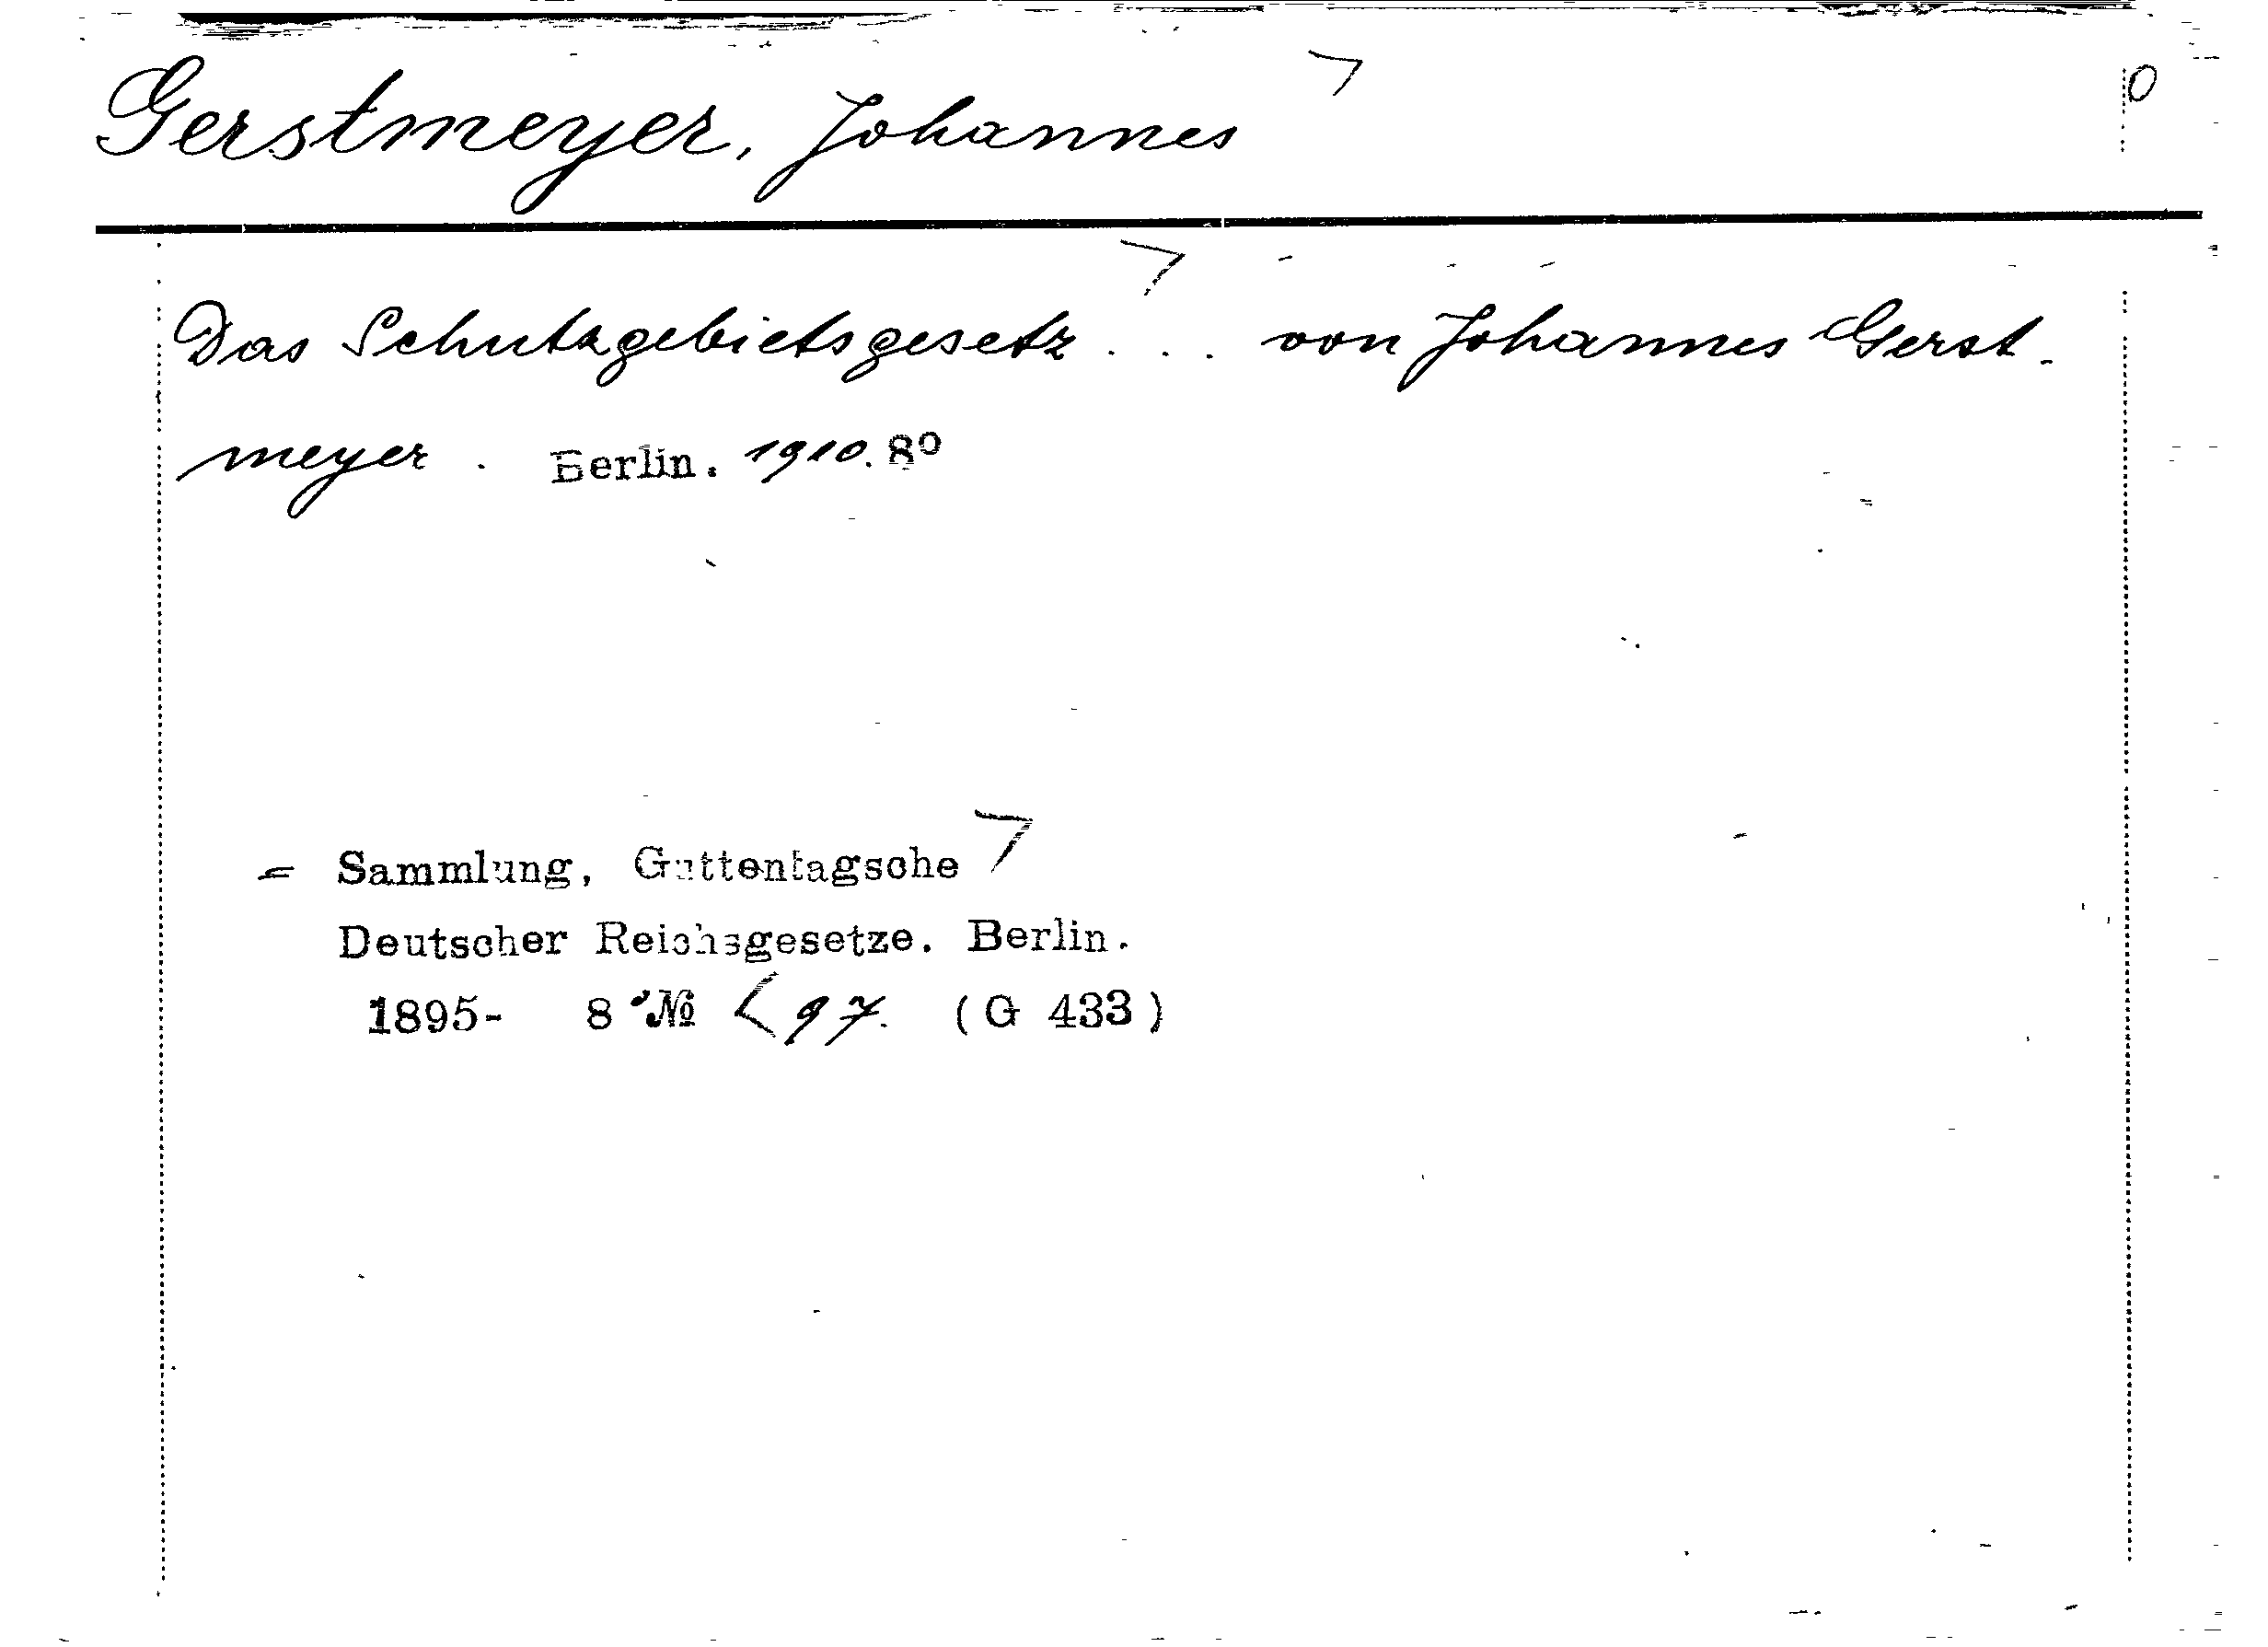 Gerstmeyer, Johannes 0
Das Schutzgebietsgesetz ... von Johannes Gerst-
meyer. Berlin. 1910. 8°
= Sammlung, Guttentagsche
Deutscher Reichsgesetze. Berlin.
1895- 8° № < 97. (G 433)